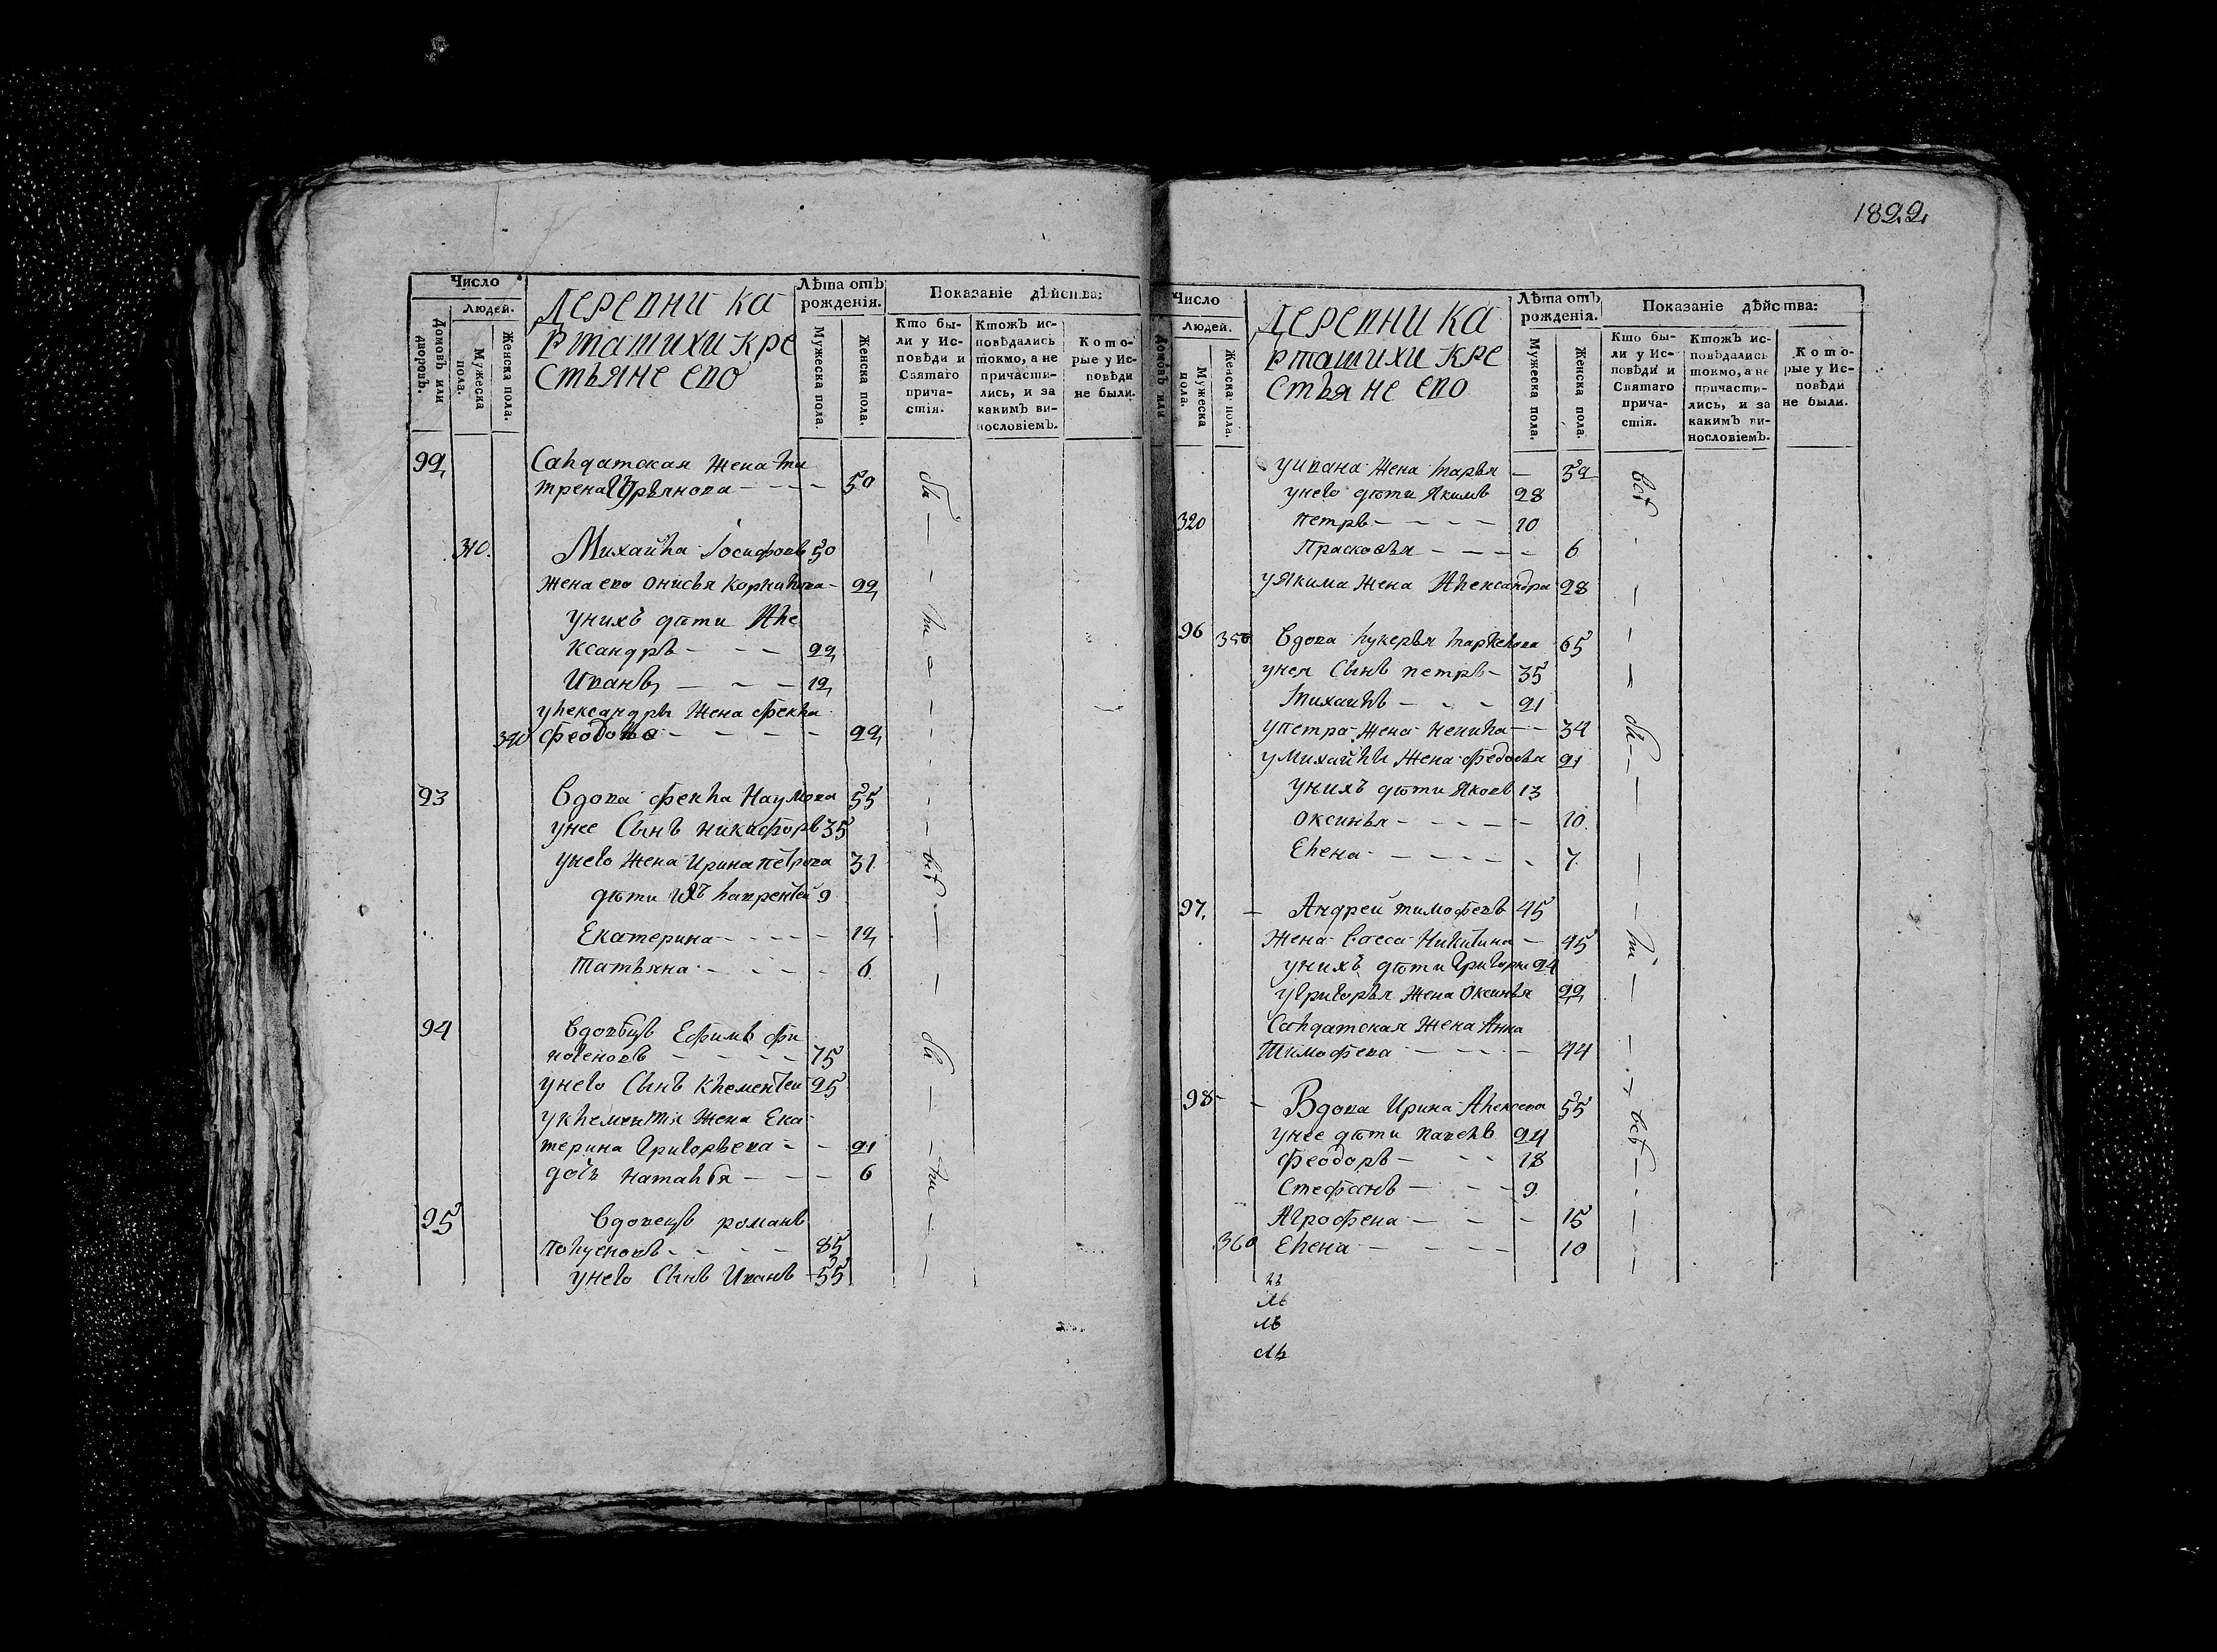 1822
Число
Людей.
Домовъ или дворовъ.
Мужеска пола.
Женска пола.
Деревни Ка
рташихи кре
стьяне ево
Лѣта отъ рожденія.
Мужеска пола.
Женска пола.
Показаніе дѣйства:
Кто бы-
ли у Ис-
повѣди и
Святаго
прича-
стія.
Ктожъ ис-
повѣдались
токмо, а не
причасти-
лись, и за
какимъ ви-
нословіемъ.
Кото-
рые у Ис-
повѣди
не были.
92 Салдатская жена
50
310. Михайла Іосифовъ 50
жена ево Онисья Корнилова 22
у нихъ дѣти Але
ксандръ 22
Иванъ 12
жена Фекла
Федо 22
93 Вдова Фекла Наумова 55
у нее сынъ Никифоръ 35
у него жена Ирина Петрова 31
дѣти ихъ Лаврентей 9
Екатерина 12
Татьяна 6
94 Вдовецъ Ефимъ
75
у него сынъ Клементей 25
у Клементя жена Ека
терина Григорьева 21
дочь Наталья 6
95 Вдовецъ Романъ
85
у него сынъ Иванъ 55
бы
ли
всѣ
бы
ли
Число
Людей.
Домовъ или
Мужеска пола.
Женска пола.
Деревни Ка
рташихи кре
стьяне ево
Лѣта отъ рожденія.
Мужеска пола.
Женска пола.
Показаніе дѣйства:
Кто бы-
ли у Ис-
повѣди и
Святаго
прича-
стія.
Ктожъ ис-
повѣдались
токмо, а не
причасти-
лись, и за
какимъ ви-
нословіемъ.
Кото-
рые у Ис-
повѣди
не были.
у Ивана жена Марья 52
у него дѣти Якимъ 28
320 Петръ 10
Прасковья 6
у Якима жена Александра 28
96 350 Вдова Лукерья 65
у нея сынъ Петръ 35
Михаилъ 21
у Петра жена Ненила 34
у Михайлы жена Федосья 21
у нихъ дѣти Яковъ 13
Оксинья 10
Елена 7
97. Андрей Тимофевъ 45
жена Васса Никитина 45
у нихъ дѣти Григорей 24
у Григорья жена Оксинья 22
Салдатская жена Анна
Тимофева 44
98 Вдова Ирина Алексева 55
у нее дѣти Павелъ 24
Феодоръ 18
Стефанъ 9
Агрофена 15
360 Елена 10
всѣ
бы
ли
всѣ